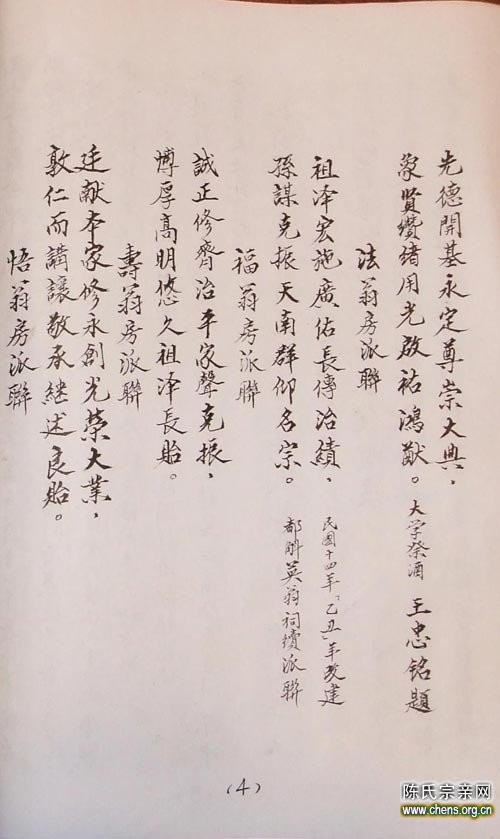 先德開基永定尊崇大典，
象賢纘緒用光啟祐鴻猷。大学祭酒 王忠铭題
法翁房派聯
祖泽宏施廣佑長傳治績，
孫謀克振天南群仰名宗。
民國十四年「乙丑」年改建
都斛英翁祠續派聯
福翁房派聯
誠正修齊治平家聲克振，
博厚高明悠久祖泽長貽。
壽翁房派聯
廷献本家修永創光榮大業，
敦仁而講讓敬承継述良貽。
悟翁房派聯
(4)
陈氏宗亲网
www.chens.org.cn